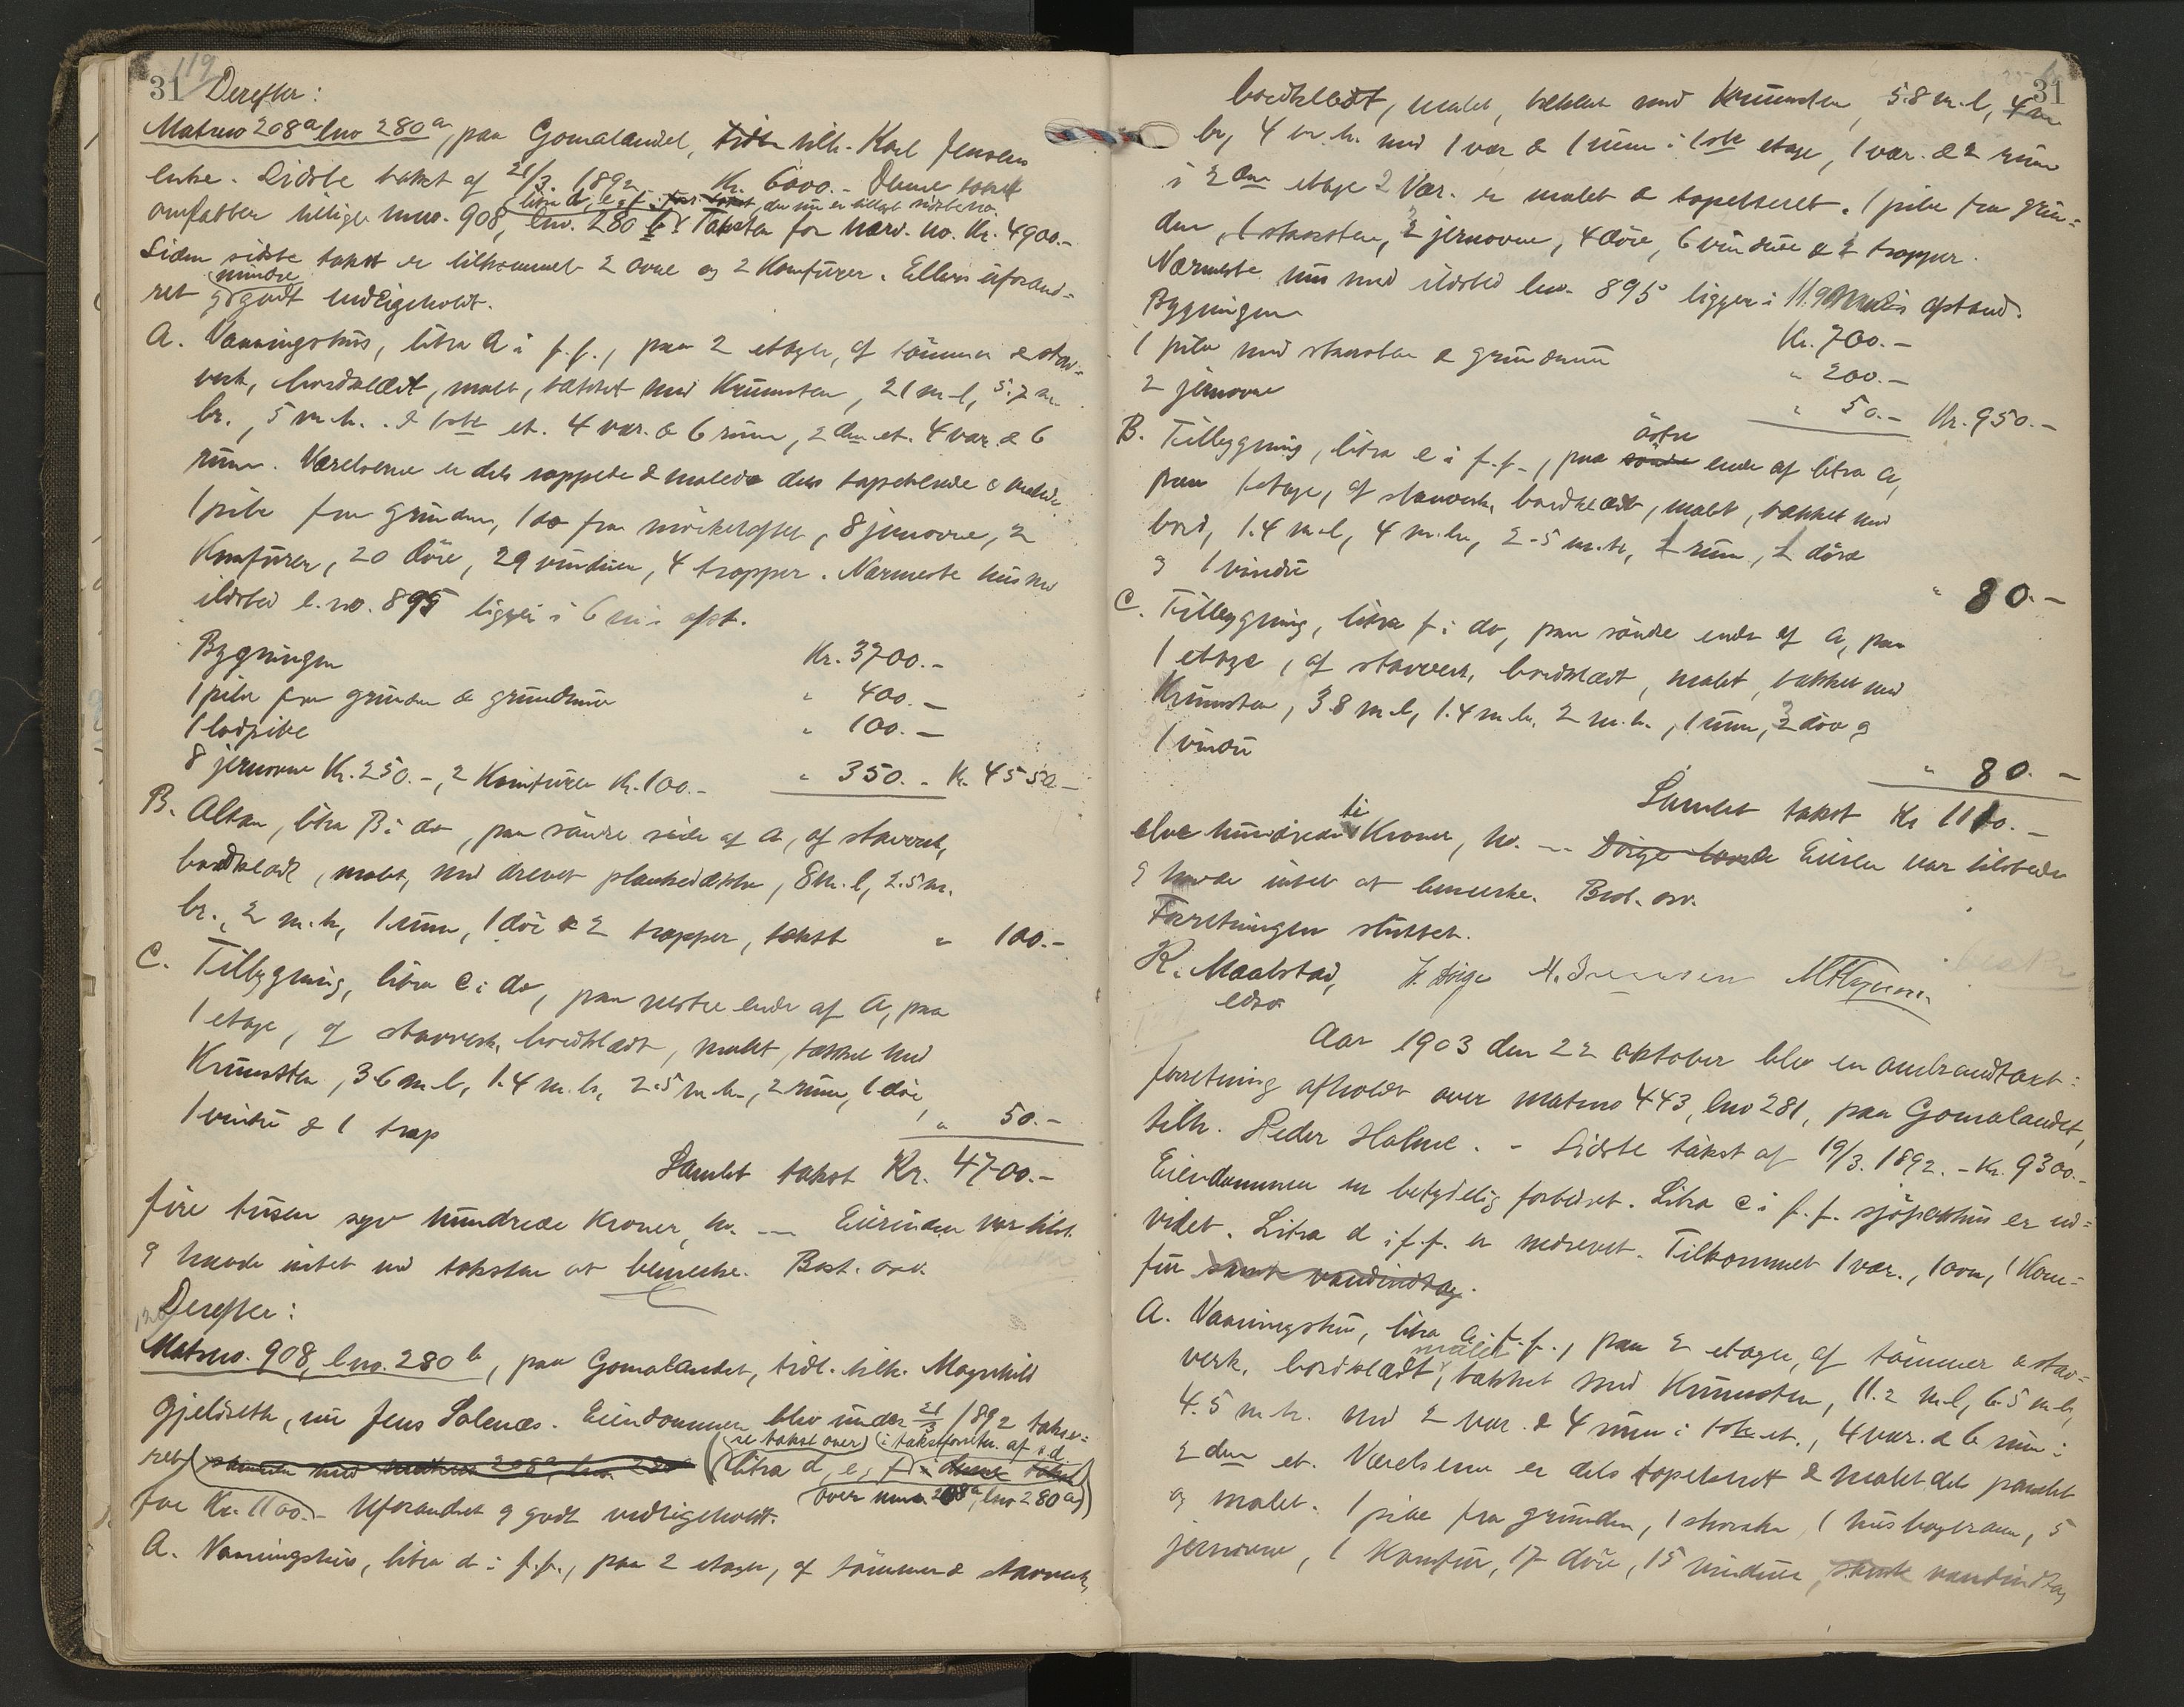 119
31 Derefter:
Matrno 208a lno 280a, paa Gomalandet, tidl. tilh. Karl Jensens
enke. Sidste takst af 21/3. 1892 Kr. 6000.- Denne takst
litra d, e, f. for takst, der nu er tillagt sidste no.
omfatter tillige mno. 908, lno. 280 b. Taksten for nærv. no. Kr. 4900.-
Siden sidste takst er tilkommet 2 ovne og 2 Komfurer. Ellers uforand=
mindre
ret g godt vedligeholdt.
A. Vaaningshus, litra A i f.f., paa 2 etager, af tömmer & stav=
verk, bordklædt, malt, tækket med Krumsten, 21 m.l, 5.7 m.
br., 5 m.h. I 1ste et. 4 vær. & 6 rum, 2den et. 4 vær. & 6
rum. Værelserne er dels rappede & malede dels tapetserede & malede
1 pibe fra grunden, 1 do fra mörkeloftet, 8 jernovne, 2
Komfurer, 20 döre, 29 vinduer, 4 trapper. Nærmeste hus med
ildsted l.no. 895 ligger i 6 m.s afst.
Bygningen Kr. 3700.-
1 pibe fra grunden & grundmur " 400.-
1 lodpibe " 100.-
8 jernovne Kr. 250.-, 2 Komfurer Kr. 100.- " 350.- Kr. 4550-
B. Altan, litra B i do, paa söndre side af A, af stavverk,
bordklædt, malt, med drevet plankedække, 8 m.l, 2.5 m.
br., 2 m.h, 1 rum, 1 dör & 2 trapper, takst " 100.-
C. Tilbygning, litra C i do, paa vestre ende af A, paa
1 etage, af stavverk, bordklædt, malet, tækket med
Krumsten, 3.6 m.l, 1.4 m.br, 2.5 m.h., 2 rum, 1 dör,
1 vindu & 1 trap " 50.-
Samlet takst Kr. 4700.-
fire tusen syv hundrede Kroner, hv. — Eierinden var tilst.
g havde intet ved taksten at bemerke. Best. osv.
120
Derefter:
Matrno. 908, lno. 280 b, paa Gomalandet, tidl. tilh. Magnhild
Gjeldseth, nu Jens Solenæs. Eiendommen blev under 21/3 1892 takse=
(se takst over) (i takstforretn. af s.d.
ret (sammen med matrno 208a, lno 280a (litra d, e, f) i denne takst
over mno. 208a, lno 280a)
for Kr. 1100.- Uforandret g godt vedligeholdt.
A. Vaaningshus, litra d i f.f., paa 2 etager, af tömmer & stavverk,
31
bordklædt, malet, tækket med Krumsten, 5.8 m.l, 4 m
br, 4 m.h. med 1 vær & 1 rum i 1ste etage, 1 vær. & 2 rum
i 2den etage 2 Vær. er malet & tapetseret. 1 pibe fra grun=
den, 1 skorsten, 2 jernovne, 4 döre, 6 vinduer & 2 trapper.
Nærmeste hus med ildsted lno. 895 ligger i 11.90 m's afstand.
Bygningen Kr. 700.-
1 pibe med skorsten & grundmur " 200.-
2 jernovne " 50.- Kr. 950.-
östre
B. Tilbygning, litra e i f.f., paa söndre ende af litra A,
paa 1 etage, af stavverk, bordklædt, malet, tækket med
bord, 1.4 m.l, 4 m.br, 2.5 m.h, 1 rum, 1 döre
g 1 vindu " 80.-
C. Tilbygning, litra f i do, paa söndre ende af A, paa
1 etage, af stavverk, bordklædt, malet, tækket med
Krumsten, 3.8 m.l, 1.4 m.br, 2 m.h., 1 rum, 2 döre g
1 vindu " 80.-
Samlet takst Kr 1110.-
ti
elve hundrede Kroner, hv. — Dörge havde Eieren var tilstede
g havde intet at bemerke. Best. osv.
Forretningen sluttet.
R. Maalstad,
edsv
Aar 1903 den 22 oktober blev en ombrandtakst=
forretning afholdt over matrno 443, lno 281, paa Gomalandet,
tilh. Peder Holme. - Sidste takst af 19/3. 1892. - Kr. 9300.-
Eiendommen er betydelig forbedret. Litra C i f.f. sjöpakhus er ud=
videt. Litra d i f.f. er nedrevet. Tilkommet 1 vær., 1 ovn, 1 Kom=
für samt vandindtag.
A. Vaaningshus, litra a i f.f., paa 2 etager, af tömmer & stav=
malet
verk, bordklædt, tækket med Krumsten, 11.2 m.l, 6.5 m.br,
4.5 m.h. med 2 vær. & 4 rum i 1ste et., 4 vær. & 6 rum i
2den et. Værelserne er dels tapetseret & malet dels panelet
og malet. 1 pibe fra grunden, 1 skorsten, 1 husbagerovn, 5
jernovne, 1 Komfur, 17 döre, 15 vinduer, samt vandindtag